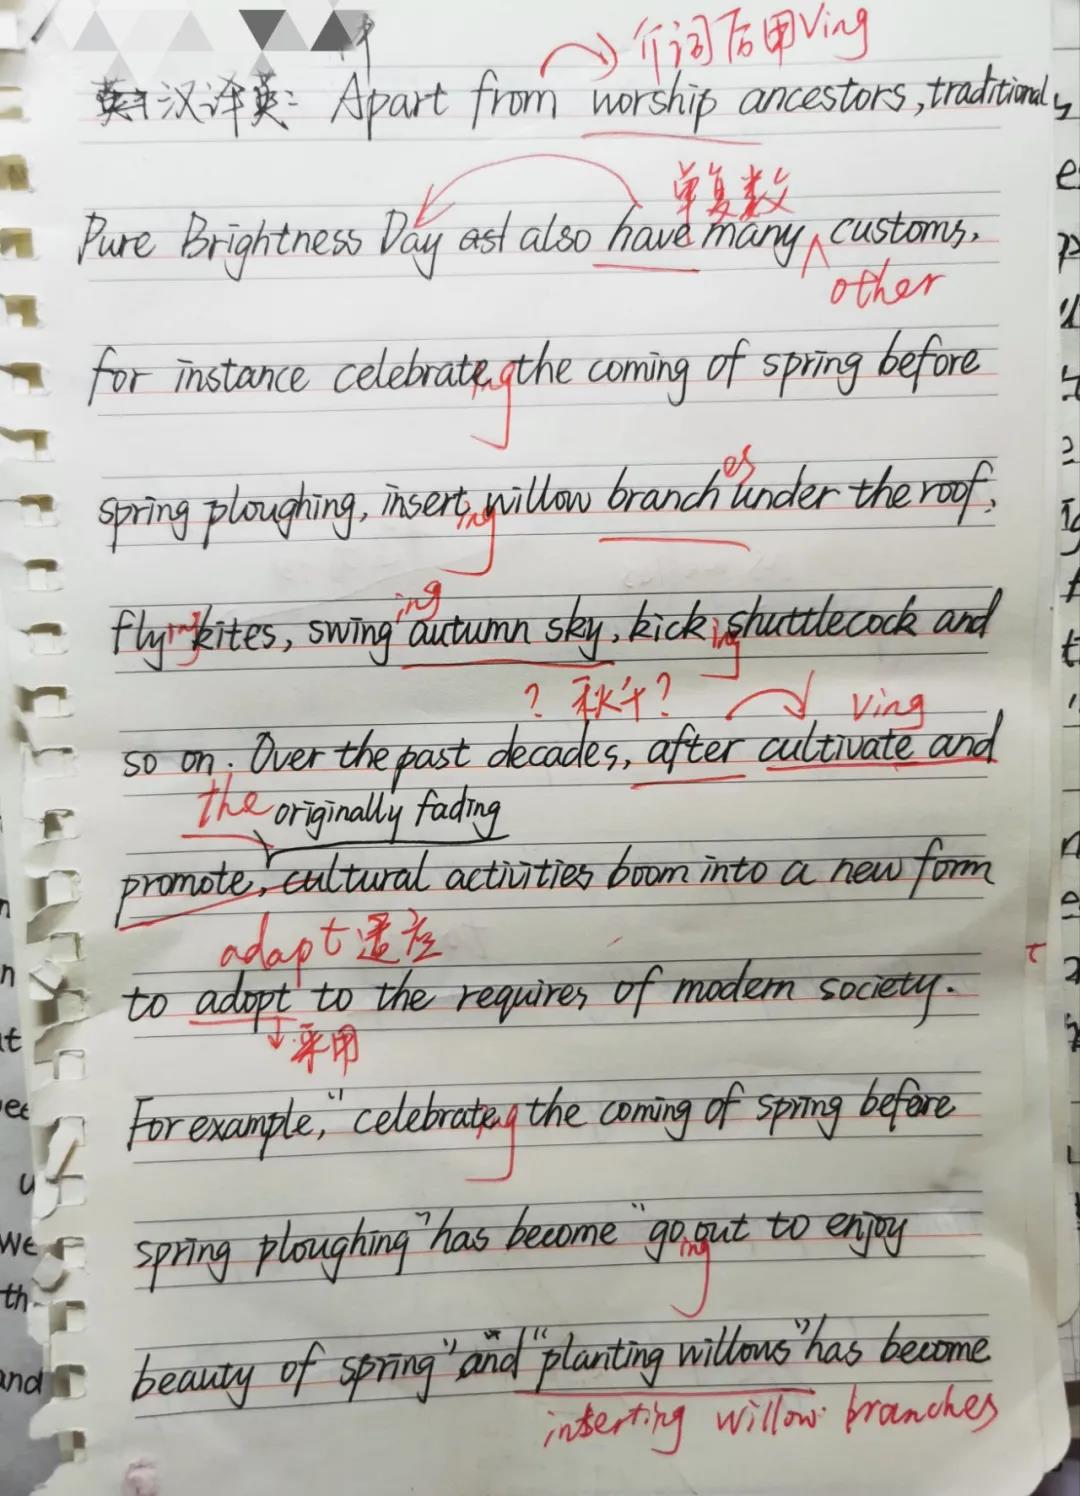 介词后用Ving
汉译英: Apart from worship ancestors, traditional
单复数
Pure Brightness Day also have many customs,
other
for instance celebrate the coming of spring before
ing
es
spring ploughing, insert willow branch under the roof,
ing
ing
fly kites, swing autumn sky, kick shuttlecock and
ing
ing
? 秋千? Ving
so on. Over the past decades, after cultivate and
the originally fading
promote, cultural activities boom into a new form
adapt 适应
to adopt to the requires of modern society.
采用
For example, "celebrate the coming of spring before
ing
spring ploughing" has become "go out to enjoy
ing
beauty of spring" and "planting willows" has become
inserting willow branches